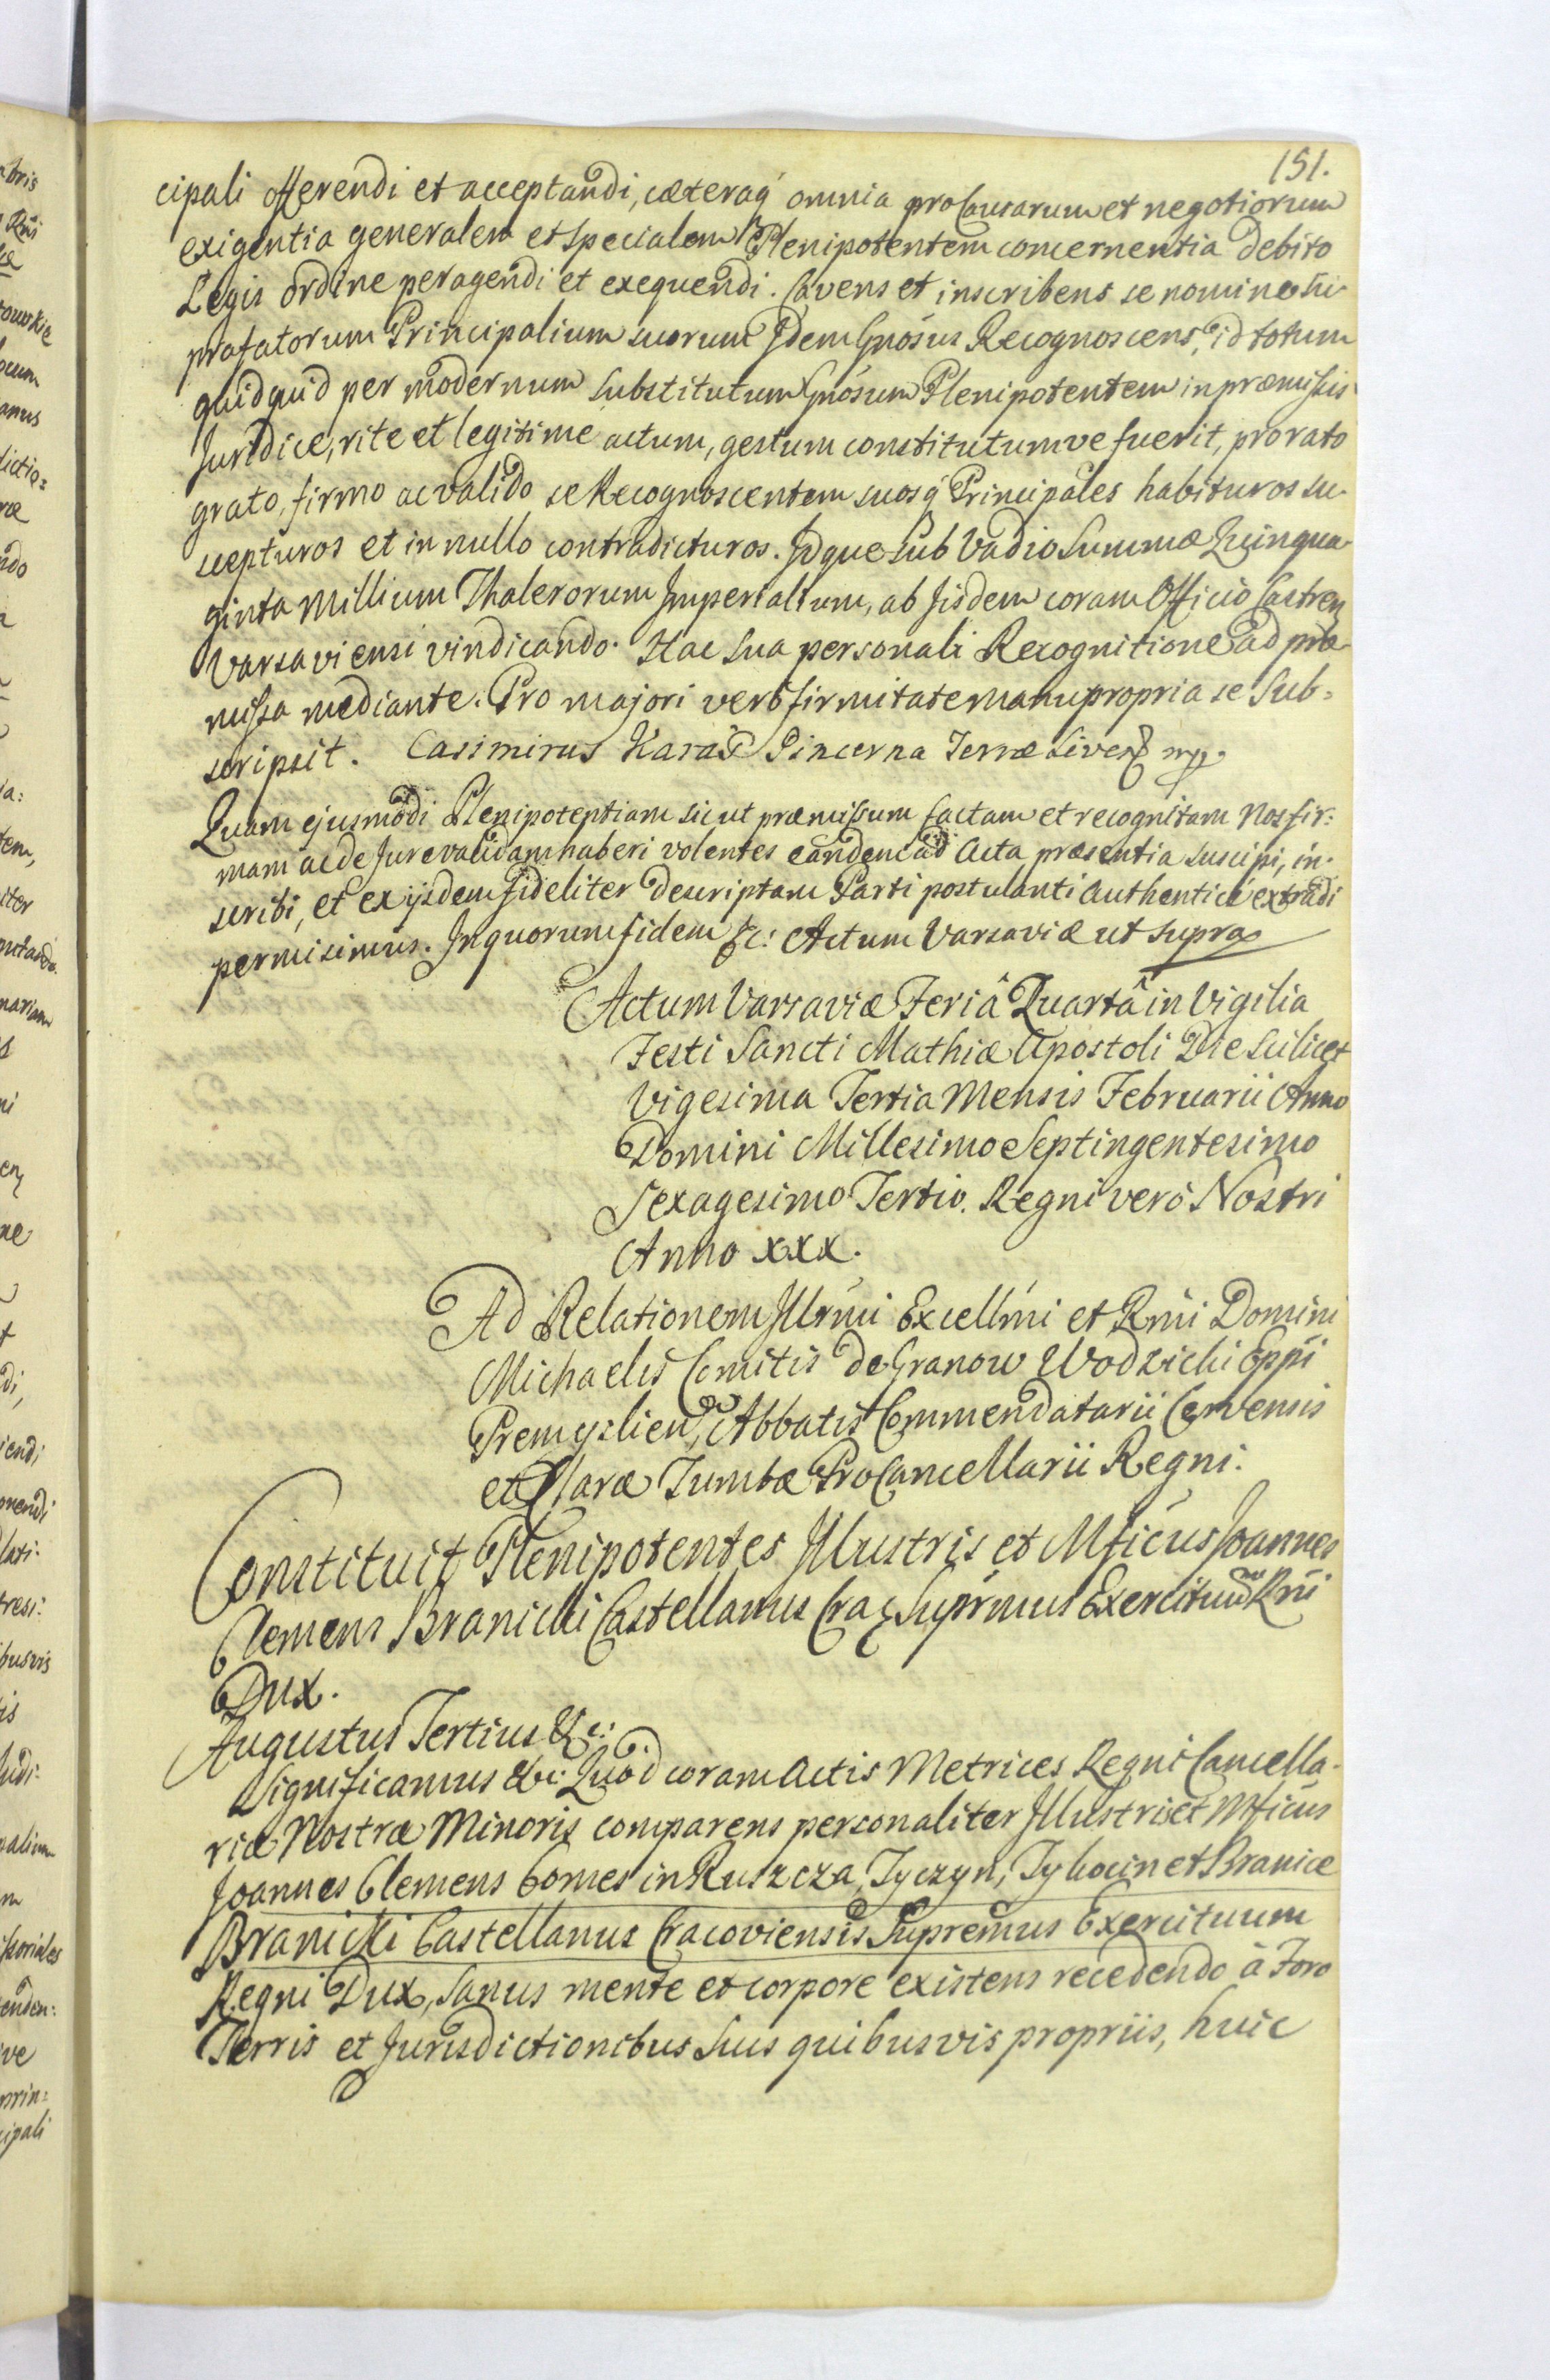 151.
cipali offerendi et acceptandi, cæteraq́ omnia pro Causarum et negotiorum
exigentia generalem et specialem Plenipotentem concernentia debito
Legis ordine peragendi et exequendi. Cavens et inscribens se nomine sui
præfatorum Principalium suorum Idem Gnósus Recognoscens, id totum
quidquid per modernum substitutum Gnósum Plenipotentem in præmissis
Juridice, rite et legitime actum, gestum constitutumve fuerit, pro rato
grato, firmo ac valido se Recognoscentem suosq́ Principales habituros su-
scepturos et in nullo contradicturos. Idque sub Vadio Summæ Quinqua
ginta Millium Thalerorum Imperialium, ab Iisdem coram Officio Castren
Varsaviensi vindicando. Hac sua personali Recognitione ad præ
missa mediante. Pro majori vero firmitate manu propria se sub=
scripsit. Casimirus Karaś Pincerna Terræ Liven mp.
Quam ejusmodi Plenipotentiam sic ut præmissum factam et recognitam Nos fir:
mam ac de Jure validam haberi volentes eandem ad Acta præsentia suscipi, in-
scribi, et ex ijsdem fideliter descriptam Parti postulanti Authenticè extradi
permisimus. In quorum fidem &c: Actum Varsaviæ ut supra
Actum Varsaviæ Feriâ Quartâ in Vigilia
Festi Sancti Mathiæ Apostoli Die scilicet
Vigesima Tertia Mensis Februarii Anno
Domini Millesimo Septingentesimo
Sexagesimo Tertio. Regni verò Nostri
Anno XXX.
Ad Relationem Illrmi Excellmi et Rmi Domini
Michaelis Comitis de Granow Wodzicki Eppi
Premyslien, Abbatis Commendatarii Cervensis
et Claræ Tumbæ ProCancellarii Regni.
Constituit Plenipotentes Illustris et Mficus Joannes
Clemens Branicki Castellanus Crac Suprmus Exercituū Rni
Dux.
Augustus Tertius &c:
Significamus &c: Quod coram Actis Metrices Regni Cancella-
riæ Nostræ Minoris comparens personaliter Illustris et Mficus
Joannes Clemens Comes in Ruszcza, Tyczyn, Tykocin et Branice
Branicki Castellanus Cracoviensis Supremus Exercituum
Regni Dux, sanus mente et corpore existens recedendo à Foro
Terris et Jurisdictionibus suis quibusvis propriis, huic